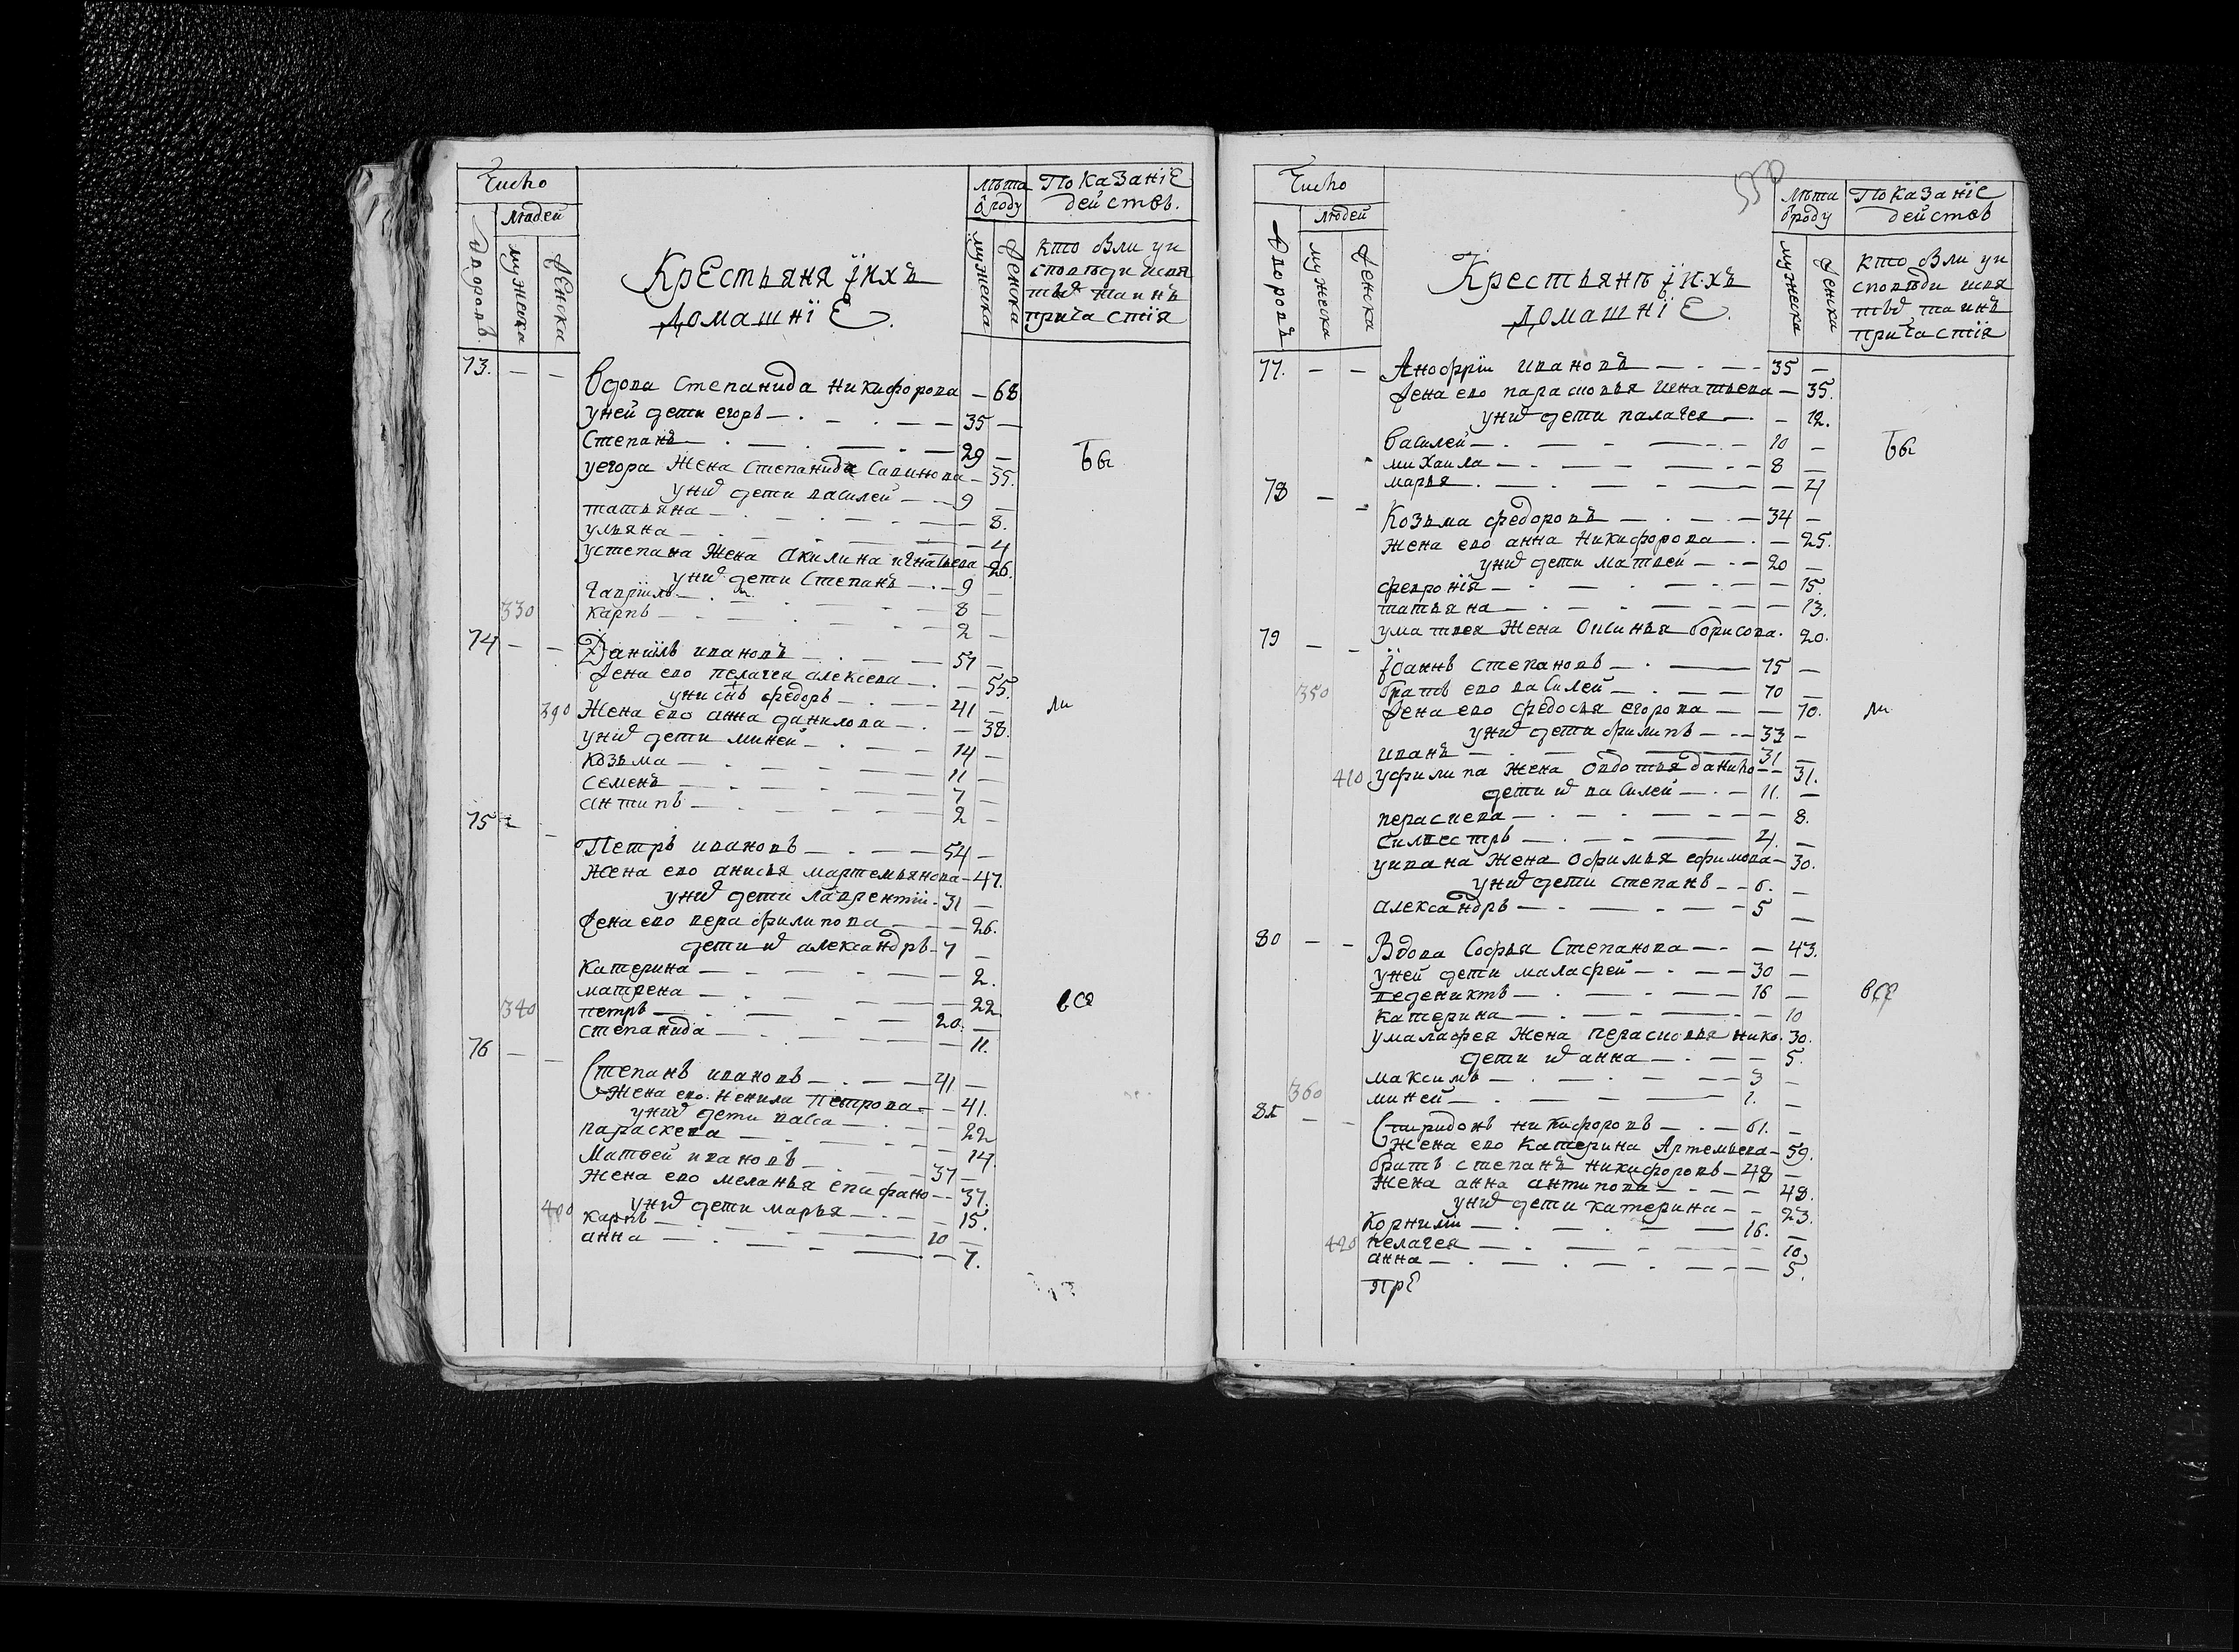 Число
людей
дворовъ
мужеска
женска
Крестьяня ихъ
домашніе
лѣта
в роду
мужеска
женска
Показаніе
действ.
кто были у и
споведи и свя
тыхъ таинъ
причастія
73. — — вдова Степанида Никифорова — 68
у ней дети егоръ — 35 —
Степанъ — 29 —
у егора жена Степанида Савинова — 35.
у них дети василей — 9 —
татьяна — 8.
ульяна — 4
у степана жена Акилина игнатьева — 26.
у них дети Степанъ — 9 —
Гавріилъ — 8 —
330 карпъ — 2 —
бы
74 — — Даніилъ ивановъ — 51 —
жена ево пелагея алексева — 55.
у них сынъ федоръ — 41 —
390 жена ево анна данилова — 38.
у них дети миней — 14 —
козьма — 11 —
семенъ — 7 —
антипъ — 2 —
ли
75 — — Петръ ивановъ — 54 —
жена ево анисья мартемьянова — 47.
у них дети лаврентій — 31 —
жена ево вера филипова — 26.
дети их александръ — 7 —
катерина — 2.
матрена — 22.
340 петръ — 20. —
степанида — 11.
все
76 — — Степанъ ивановъ — 41 —
жена ево ненила Петрова — 41.
у них дети васса — 22
параскева — 14.
Матфей ивановъ — 37 —
жена ево меланья епифано — 37.
у них дети марья — 15.
400 карпъ — 10 —
анна — 7.
350
Число
людей
дворовъ
мужеска
женска
Крестьянъ ихъ
домашніе
лѣта
в роду
мужеска
женска
Показаніе
действ
кто были у и
споведи и свя
тыхъ таинъ
причастія
77. — — Анофрій ивановъ — 35 —
жена ево парасковья игнатьева — 35.
у них дети палагея — 12.
василей — 10 —
михаила — 8 —
марья — 4
бы
78 — — Козьма федоровъ — 34 —
жена ево анна Никифорова — 25.
у них дети матвей — 20 —
февронія — 15.
татьяна — 13.
у матвея жена Оксинья борисова. 20.
79 — — Іоаннъ степановъ — 75 —
350 братъ ево василей — 70 —
жена ево федосья егорова — 70.
у них дети филипъ — 33 —
иванъ — 31 —
410 у филипа жена Овдотья данило — 31.
дети их василей — 11. —
перасцева — 8.
силвестръ — 4. —
у ивана жена Офимья ефимова — 30.
у них дети степанъ — 6. —
александръ — 5 —
ли
80 — — Вдова Софья Степанова — 43.
у ней дети маласфей — 30 —
веденихтъ — 16 —
катерина — 10
у маласфея жена перасковья нико. 30.
дети их анна — 5.
максимъ — 3 —
360 миней — 1. —
все
81 — — Спиридонъ никифоровъ — 61. —
жена ево катерина Артемьева — 59.
братъ степанъ никифоровъ — 48 —
жена анна антипова — 48.
у них дети катерина — 23.
Корнилій — 16. —
420 пелагея — 10.
анна — 5.
пре